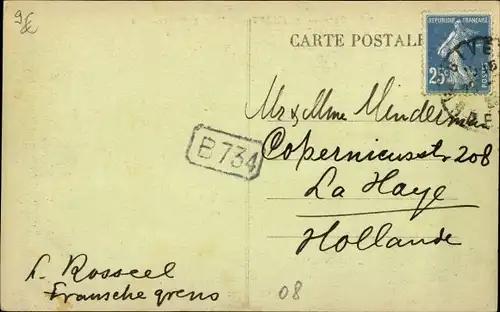 9
CARTE POSTALE
REPUBLIQUE FRANÇAISE
25c
POSTES
Mr & Mme Minderman
B734
Copernicusstr 208
La Haye
Hollande
Rosseel
Fransche grens
08